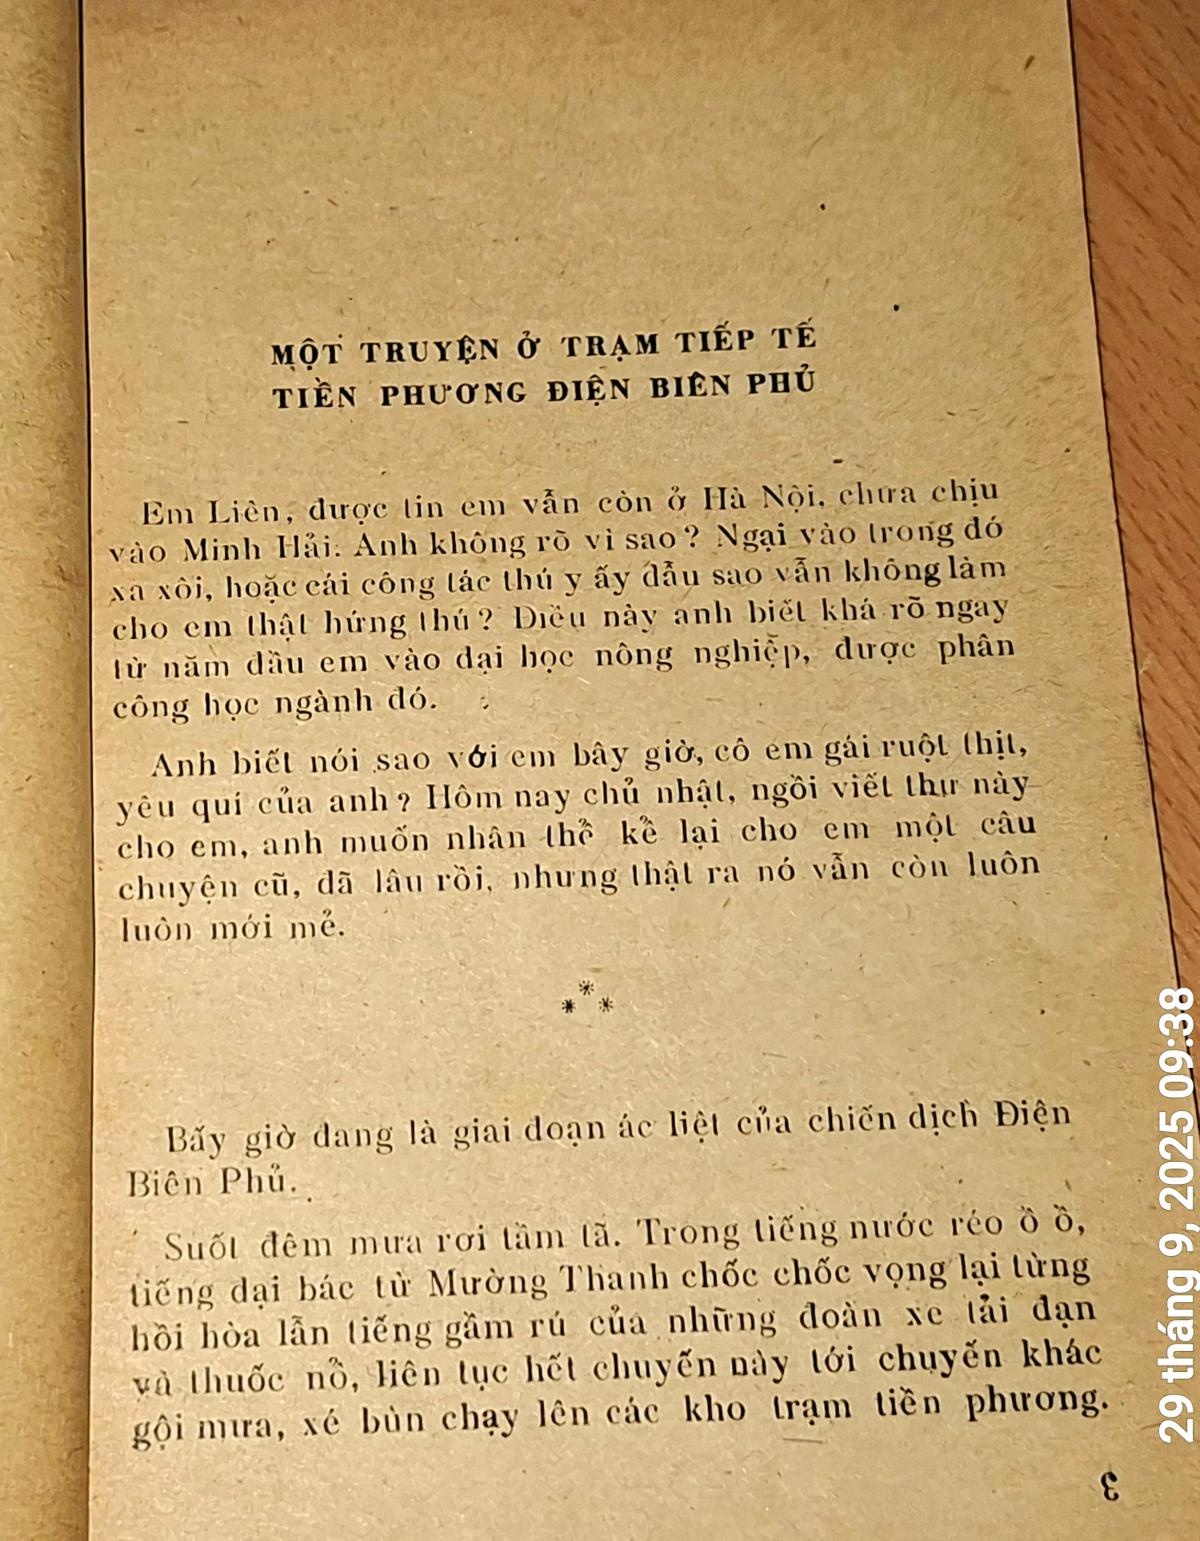 MỘT TRUYỆN Ở TRẠM TIẾP TẾ
TIỀN PHƯƠNG ĐIỆN BIÊN PHỦ
Em Liên, được tin em vẫn còn ở Hà Nội, chưa chịu
vào Minh Hải. Anh không rõ vì sao? Ngại vào trong đó
xa xôi, hoặc cái công tác thú y ấy dẫu sao vẫn không làm
cho em thật hứng thú? Điều này anh biết khá rõ ngay
từ năm đầu em vào đại học nông nghiệp, được phân
công học ngành đó.
Anh biết nói sao với em bây giờ, cô em gái ruột thịt,
yêu quí của anh? Hôm nay chủ nhật, ngồi viết thư này
cho em, anh muốn nhân thể kể lại cho em một câu
chuyện cũ, đã lâu rồi, nhưng thật ra nó vẫn còn luôn
luôn mới mẻ.
* * *
Bấy giờ đang là giai đoạn ác liệt của chiến dịch Điện
Biên Phủ.
Suốt đêm mưa rơi tầm tã. Trong tiếng nước réo ồ ồ,
tiếng đại bác từ Mường Thanh chốc chốc vọng lại từng
hồi hòa lẫn tiếng gầm rú của những đoàn xe tải đạn
và thuốc nổ, liên tục hết chuyến này tới chuyến khác
gội mưa, xé bùn chạy lên các kho trạm tiền phương.
3
29 tháng 9, 2025 09:38